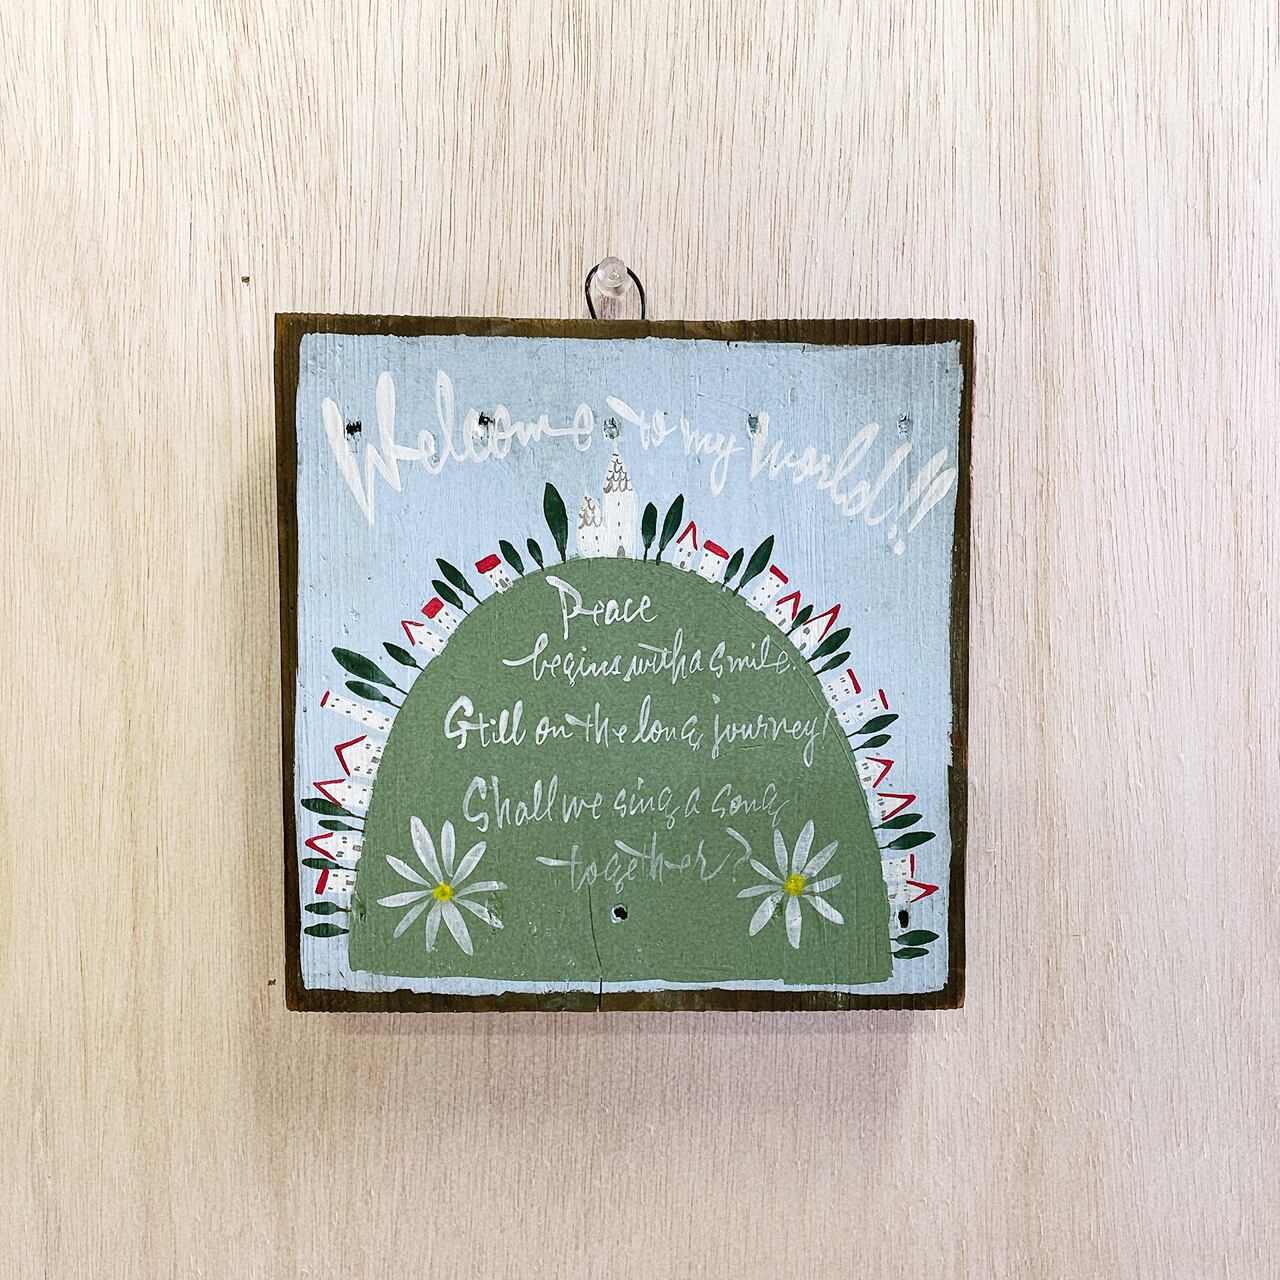 Welcome to my world!!
Peace
begins with a smile.
Still on the long journey!
Shall we sing a song
together?